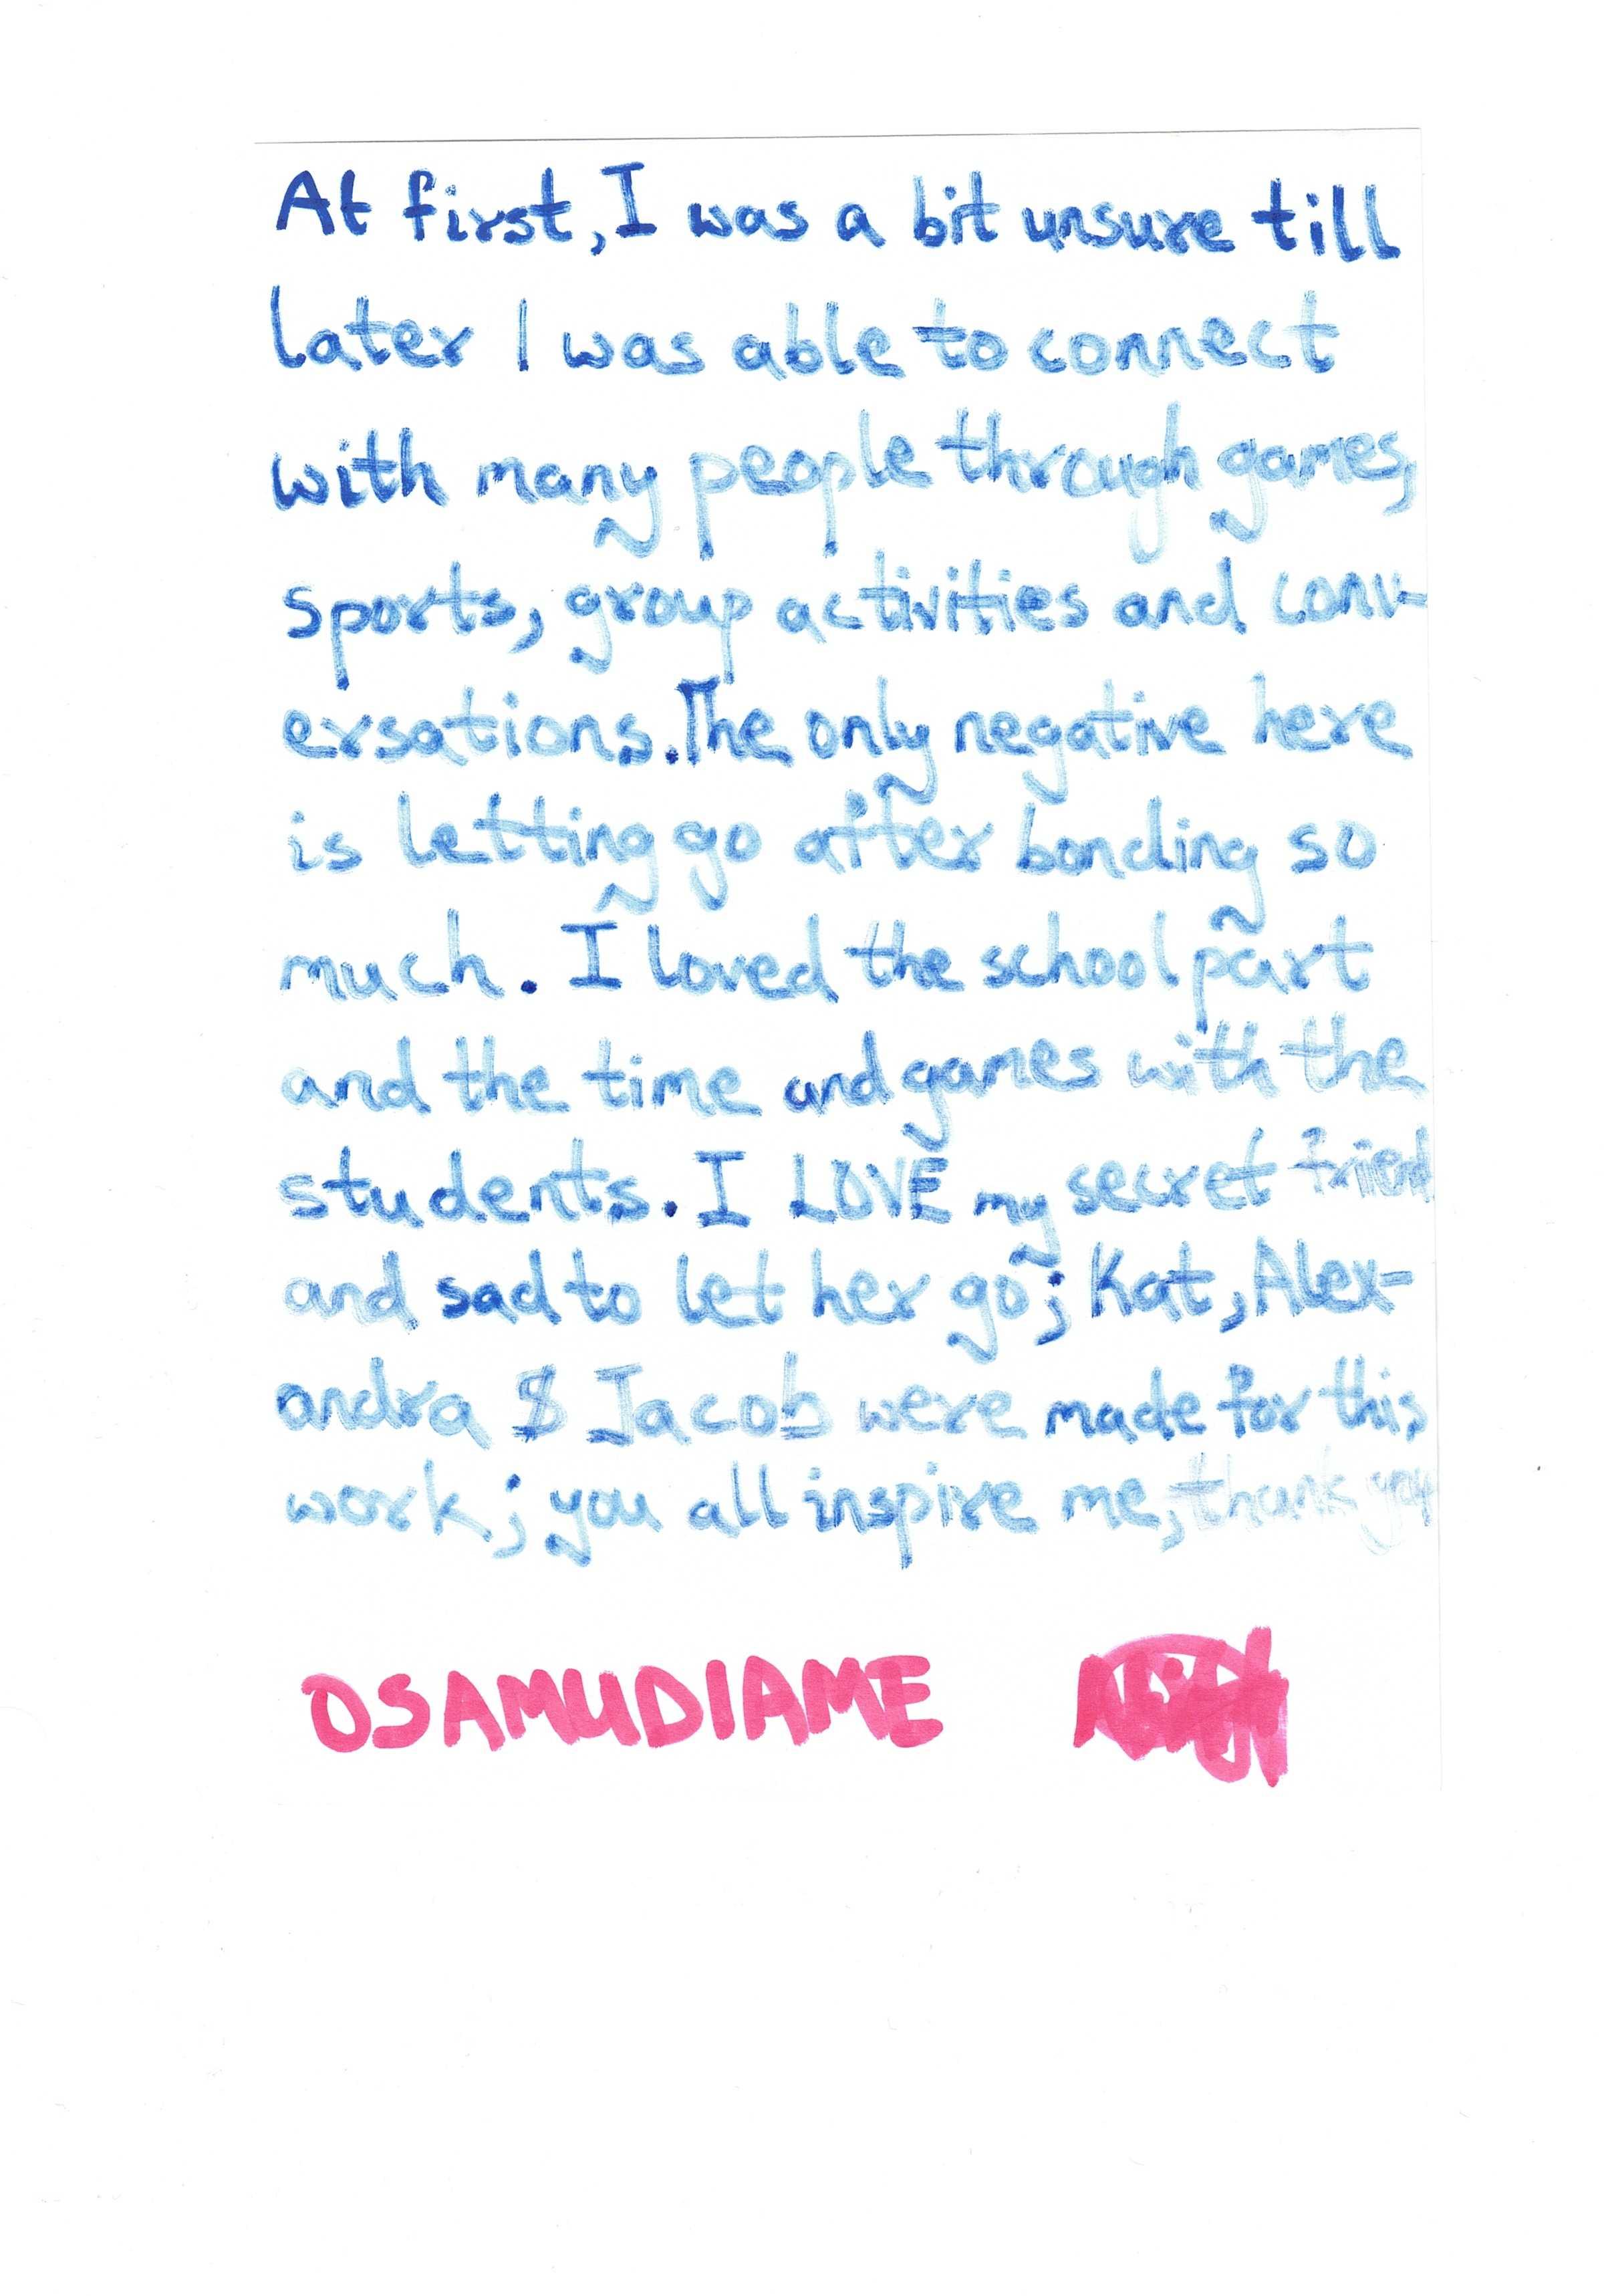 At first, I was a bit unsure till
later I was able to connect
with many people through games,
sports, group activities and conv-
ersations. The only negative here
is letting go after bonding so
much. I loved the school part
and the time and games with the
students. I LOVE my secret friend
and sad to let her go; Kat, Alex-
andra & Jacob were made for this
work; you all inspire me, thank you
OSAMUDIAME